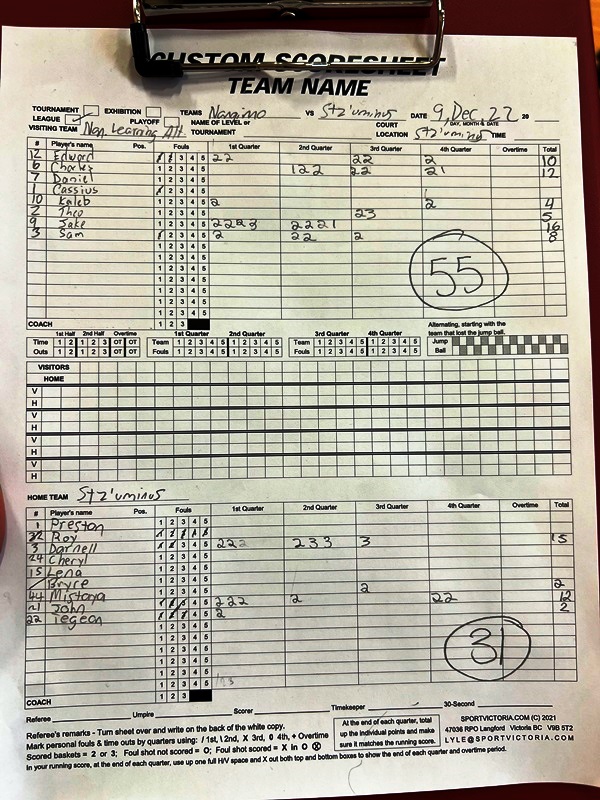 CUSTOM SCORESHEET
TEAM NAME
TOURNAMENT EXHIBITION TEAMS Nanaimo VS Stz'uminus DATE 9, Dec 22 20
DAY, MONTH & DATE
LEAGUE PLAYOFF NAME OF LEVEL or TOURNAMENT COURT LOCATION Stz'uminus TIME
VISITING TEAM Nan Learning Alt
# Player's name Pos. Fouls 1st Quarter 2nd Quarter 3rd Quarter 4th Quarter Overtime Total
12 Edward 1 2 3 4 5 22 22 2 10
6 Charles 1 2 3 4 5 122 22 21 12
7 Daniel 1 2 3 4 5
1 Cassius 1 2 3 4 5
10 Kaleb 1 2 3 4 5 2 2 4
2 Theo 1 2 3 4 5 23 5
9 Jake 1 2 3 4 5 2223 2221 16
3 Sam 1 2 3 4 5 2 22 2 8
1 2 3 4 5
1 2 3 4 5
1 2 3 4 5
1 2 3 4 5
1 2 3 4 5
55
COACH 1 2 3
1st Half 2nd Half Overtime 1st Quarter 2nd Quarter 3rd Quarter 4th Quarter Alternating, starting with the team that lost the jump ball.
Time 1 2 1 2 3 OT OT Team 1 2 3 4 5 1 2 3 4 5 Team 1 2 3 4 5 1 2 3 4 5 Jump
Outs 1 2 1 2 3 OT OT Fouls 1 2 3 4 5 1 2 3 4 5 Fouls 1 2 3 4 5 1 2 3 4 5 Ball
VISITORS
HOME
V
H
V
H
V
H
V
H
HOME TEAM Stz'uminus
# Player's name Pos. Fouls 1st Quarter 2nd Quarter 3rd Quarter 4th Quarter Overtime Total
1 Preston 1 2 3 4 5
32 Roy 222 233 3 15
3 Darnell 1 2 3 4 5
24 Cheryl 1 2 3 4 5
15 Lena 1 2 3 4 5
Bryce 1 2 3 4 5 2 2
44 Mistaya 4 5 222 2 22 12
21 John 4 5 2 2
22 Tegean 1 2 3 4 5
1 2 3 4 5
1 2 3 4 5
1 2 3 4 5
1 2 3 4 5
31
COACH 1 2 3
Referee Umpire Scorer Timekeeper 30-Second
Referee's remarks - Turn sheet over and write on the back of the white copy.
Mark personal fouls & time outs by quarters using: / 1st, \ 2nd, X 3rd, 0 4th, + Overtime
Scored baskets = 2 or 3; Foul shot not scored = O; Foul shot scored = X in O ⊗
In your running score, at the end of each quarter, use up one full H/V space and X out both top and bottom boxes to show the end of each quarter and overtime period.
At the end of each quarter, total up the individual points and make sure it matches the running score.
SPORTVICTORIA.COM (C) 2021
47036 RPO Langford Victoria BC V9B 5T2
LYLE@SPORTVICTORIA.COM